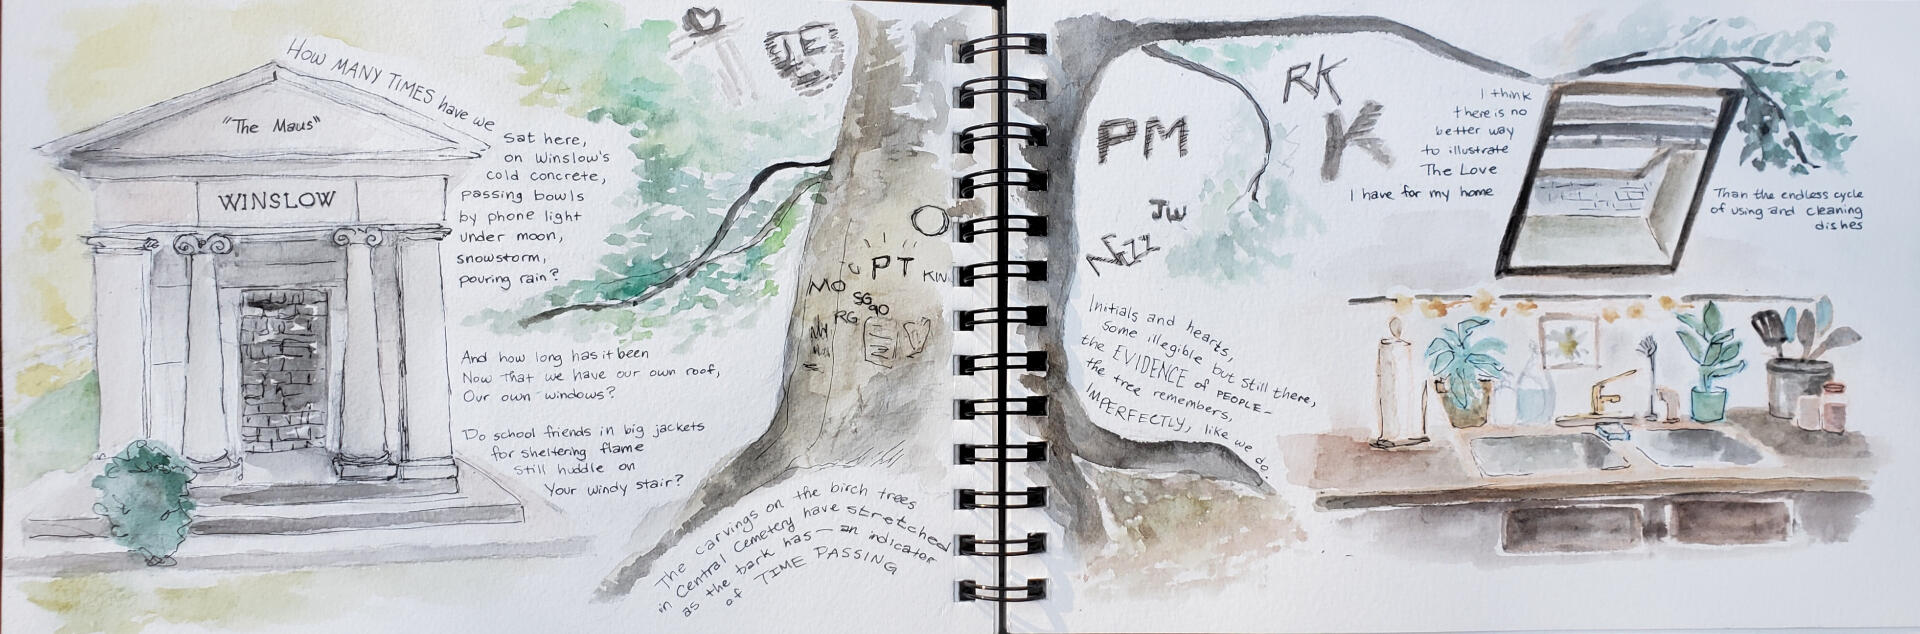 HOW MANY TIMES have we
sat here,
on Winslow's
cold concrete,
passing bowls
by phone light
under moon,
snowstorm,
pouring rain?
"The Maus"
WINSLOW
And how long has it been
Now that we have our own roof,
Our own windows?
Do school friends in big jackets
for sheltering flame
still huddle on
Your windy stair?
JE
PT
KIN
MO
SG
90
RG
The carvings on the birch trees
in Central Cemetery have stretched
as the bark has — an indicator
of TIME PASSING
RK
K
PM
JW
Initials and hearts,
some illegible but still there,
the EVIDENCE of PEOPLE—
the tree remembers,
IMPERFECTLY, like we do.
I think
there is no
better way
to illustrate
The Love
I have for my home
Than the endless cycle
of using and cleaning
dishes